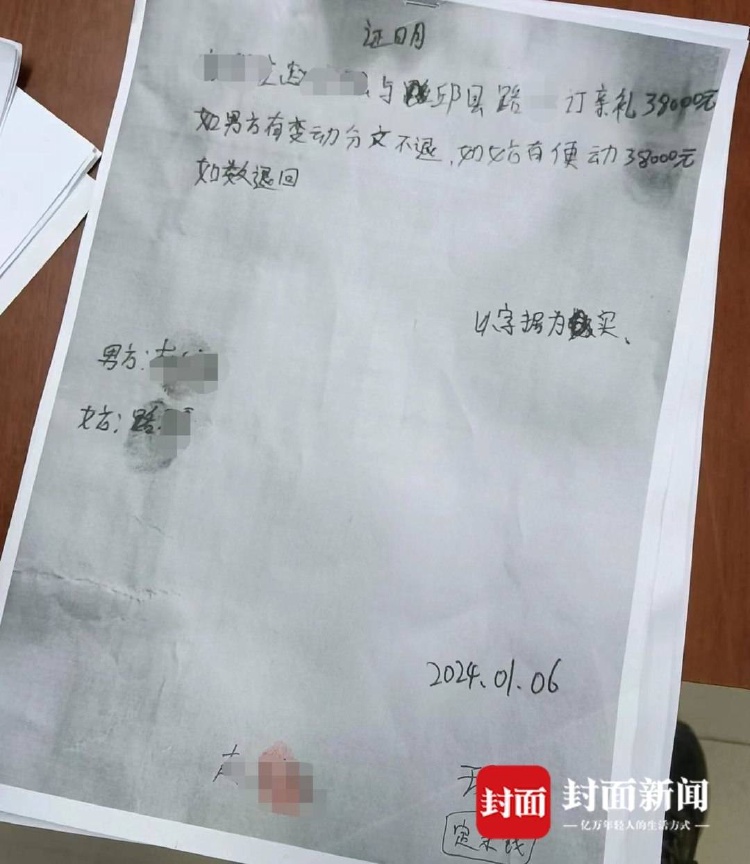 证明
与邱县路 订亲礼38000元
如男方有变动分文不退,如女方有便动38000元
如数退回
以字据为实、
男方:
女方:路
2024.01.06
封面 封面新闻
亿万年轻人的生活方式